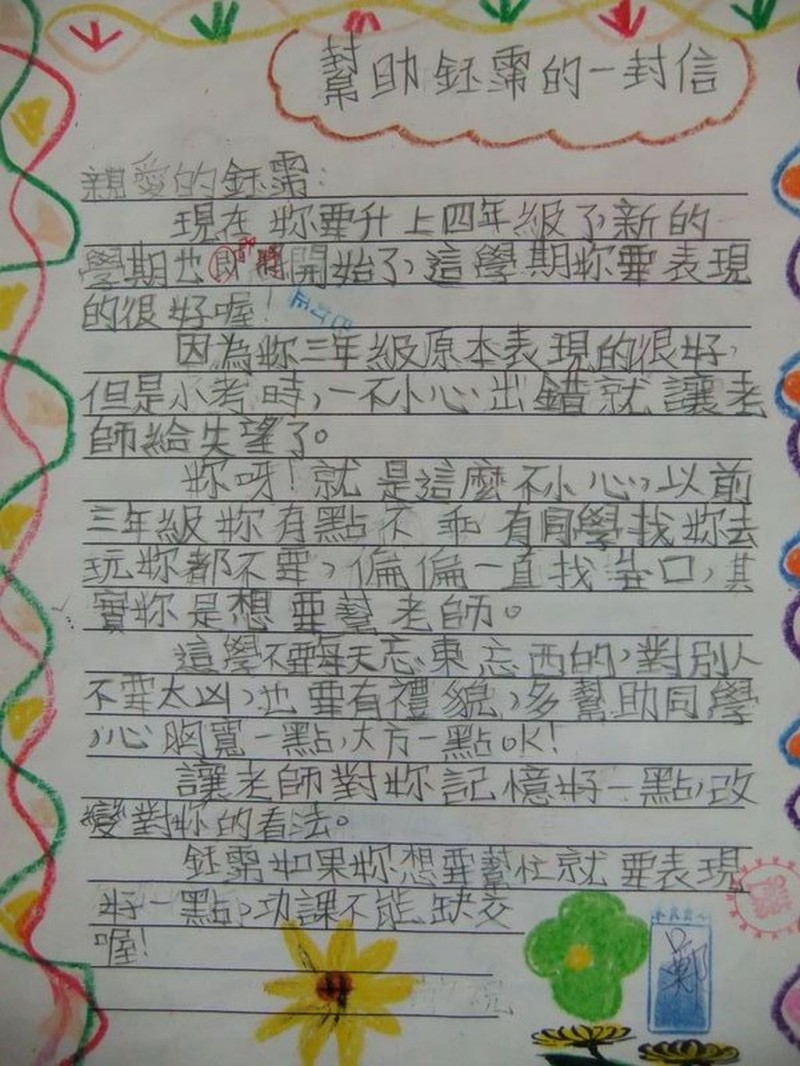 幫助鈺霈的一封信
親愛的鈺霈:
現在妳要升上四年級了,新的
學期也即將開始了,這學期妳要表現
的很好喔!
因為妳三年級原本表現的很好,
但是小考時,一不小心出錯就讓老
師給失望了。
妳呀!就是這麼不小心,以前
三年級妳有點不乖有同學找妳去
玩妳都不要,偏偏一直找藉口,其
實妳是想要幫老師。
這學不要每天忘東忘西的,對別人
不要太凶,也要有禮貌,多幫助同學
,心胸寬一點,大方一點OK!
讓老師對妳記憶好一點,改
變對妳的看法。
鈺霈如果妳想要幫忙就要表現
好一點,功課不能缺交
喔!
鄭